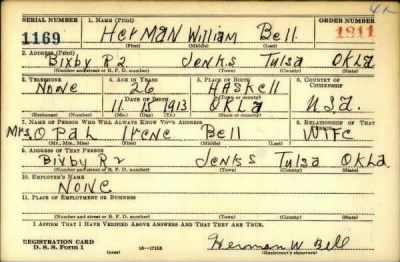 SERIAL NUMBER 1. NAME (Print) ORDER NUMBER
1169 Herman William Bell 1211
(First) (Middle) (Last)
2. ADDRESS (Print)
Bixby R2 Jenks Tulsa Okla
(Number and street or R. F. D. number) (Town) (County) (State)
3. TELEPHONE 4. AGE IN YEARS 5. PLACE OF BIRTH 6. COUNTRY OF CITIZENSHIP
None 26 Haskell
DATE OF BIRTH
11 15 1913 Okla USA.
(Exchange) (Number) (Mo.) (Day) (Yr.) (State or country)
7. NAME OF PERSON WHO WILL ALWAYS KNOW YOUR ADDRESS 8. RELATIONSHIP OF THAT PERSON
Mrs Opal Irene Bell Wife
(Mr., Mrs., Miss) (First) (Middle) (Last)
9. ADDRESS OF THAT PERSON
Bixby R2 Jenks Tulsa Okla.
(Number and street or R. F. D. number) (Town) (County) (State)
10. EMPLOYER'S NAME
None
11. PLACE OF EMPLOYMENT OR BUSINESS
(Number and street or R. F. D. number) (Town) (County) (State)
I AFFIRM THAT I HAVE VERIFIED ABOVE ANSWERS AND THAT THEY ARE TRUE.
REGISTRATION CARD
D. S. S. Form 1 (over) 16—17105 Herman W Bell
(Registrant's signature)